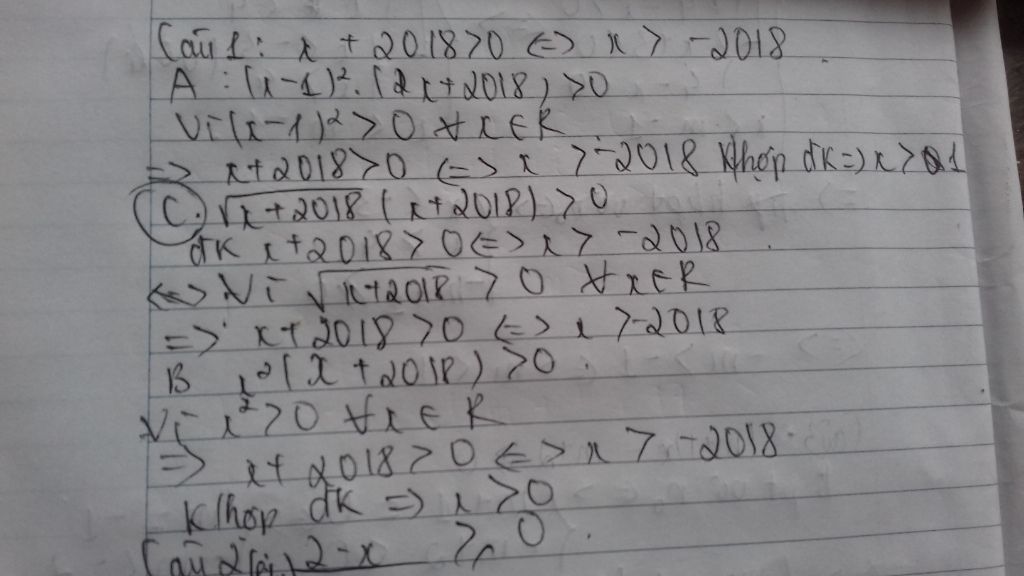 Câu 1: x + 2018 > 0 <=> x > -2018
A : (x-1)². (2x+2018) > 0
Vì (x-1)² > 0 ∀x∈R
=> x+2018 > 0 <=> x > -2018 K/hợp đk => x > 1
C. √x+2018 (x+2018) > 0
đk x+2018 > 0 <=> x > -2018
<=> Vì √x+2018 > 0 ∀x∈R
=> x+2018 > 0 <=> x > -2018
B x²(x+2018) > 0.
Vì x² > 0 ∀x∈R
=> x+2018 > 0 <=> x > -2018
K/hợp đk => x > 0
Câu 2 2-x ≥ 0.